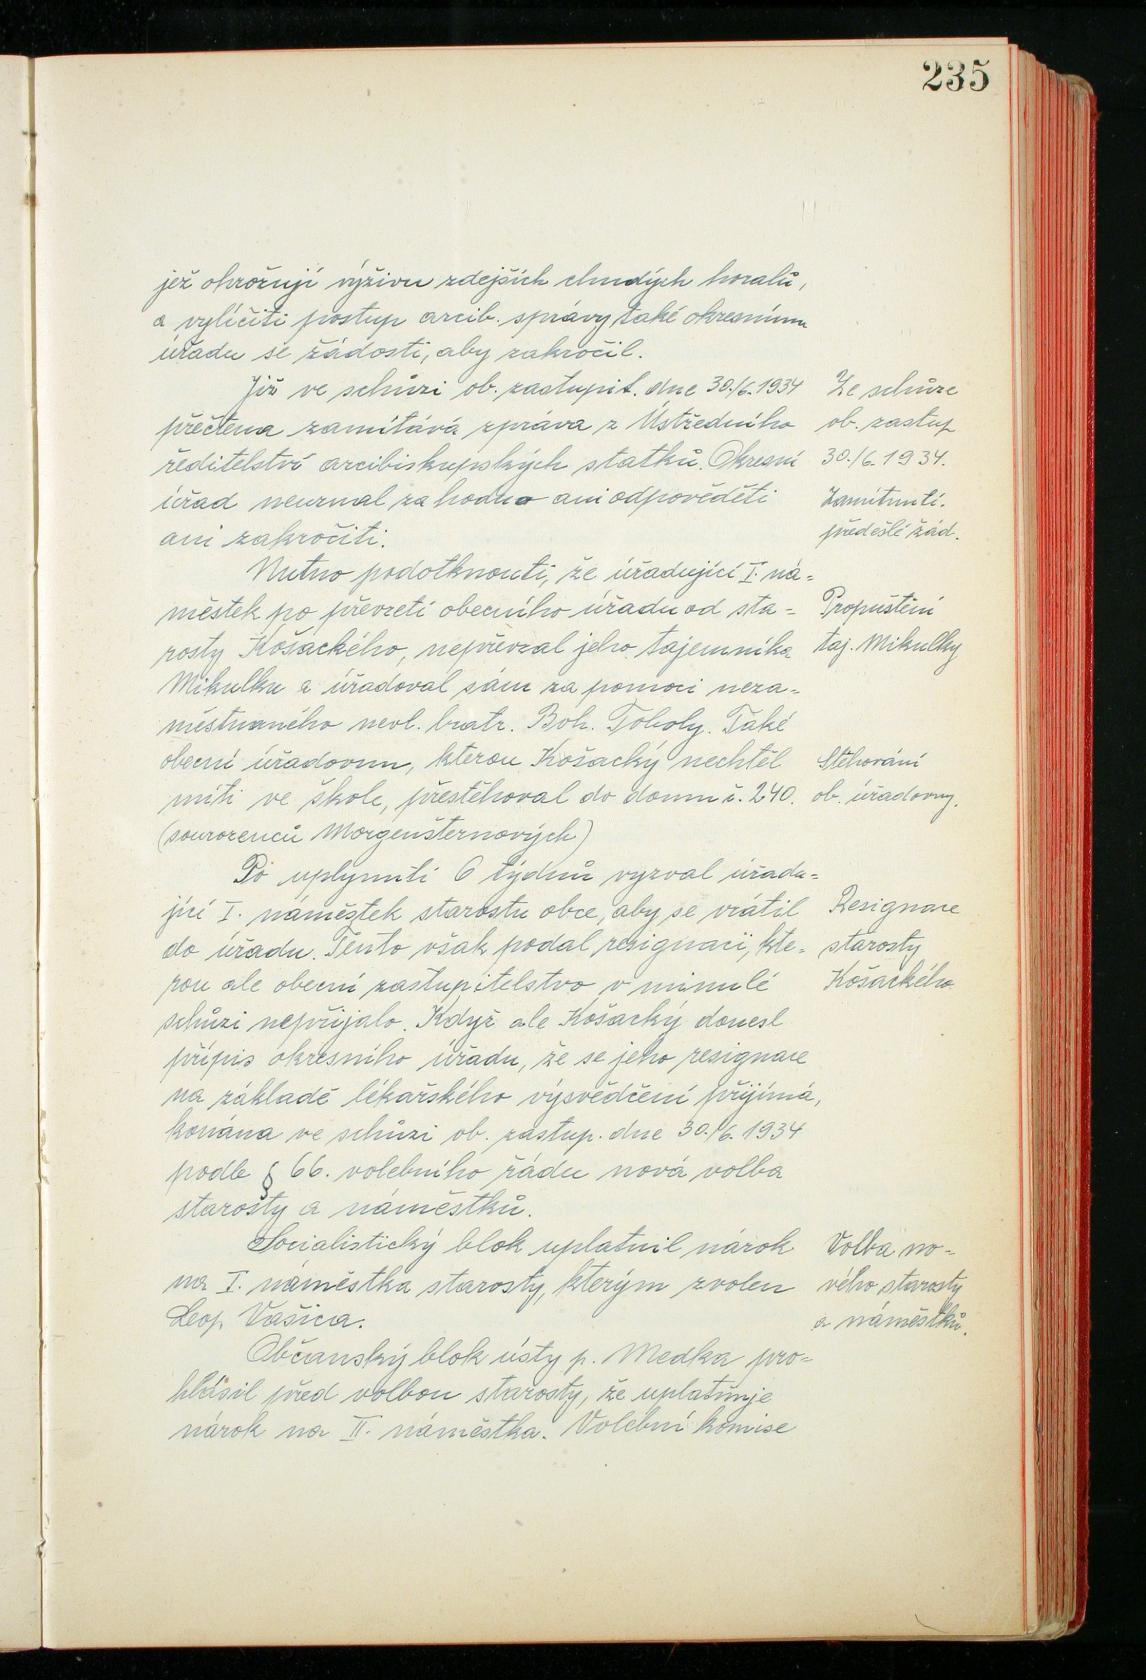 235
jež ohrožují výživu zdejších chudých horalů,
a vylíčiti postup arcib. správy také okresnímu
úřadu se žádostí, aby zakročil.
Již ve schůzi ob. zastupit. dne 30./6. 1934
Ze schůze
přečtena zamítává zpráva z Ústředního
ob. zastup
ředitelství arcibiskupských statků. Okresní
30./6. 1934.
úřad neuznal za hodno ani odpověděti
Zamítnutí.
ani zakročiti.
předešlé žád.
Nutno podotknouti, že úřadující I. ná=
městek po převzetí obecního úřadu od sta=
Propuštění
rosty Košackého, nepřevzal jeho tajemníka
taj. Mikulky
Mikulku a úřadoval sám za pomoci neza=
městnaného nevl. bratr. Boh. Toholy. Také
obecní úřadovnu, kterou Košacký nechtěl
Stěhování
míti ve škole, přestěhoval do domu č. 240.
ob. úřadovny.
(sourozenců Morgenšternových)
Po uplynutí 6 týdnů vyzval úřadu=
jící I. náměstek starostu obce, aby se vrátil
Resignace
do úřadu. Tento však podal resignaci, kte=
starosty
rou ale obecní zastupitelstvo v minulé
Košackého
schůzi nepřijalo. Když ale Košacký donesl
přípis okresního úřadu, že se jeho resignace
na základě lékařského vysvědčení přijímá,
konána ve schůzi ob. zastup. dne 30./6. 1934
podle § 66. volebního řádu nová volba
starosty a náměstků.
Socialistický blok uplatnil nárok
Volba no=
na I. náměstka starosty, kterým zvolen
vého starosty
Leop. Vašica.
a náměstků.
Občanský blok ústy p. Medka pro=
hlásil před volbou starosty, že uplatňuje
nárok na II. náměstka. Volební komise